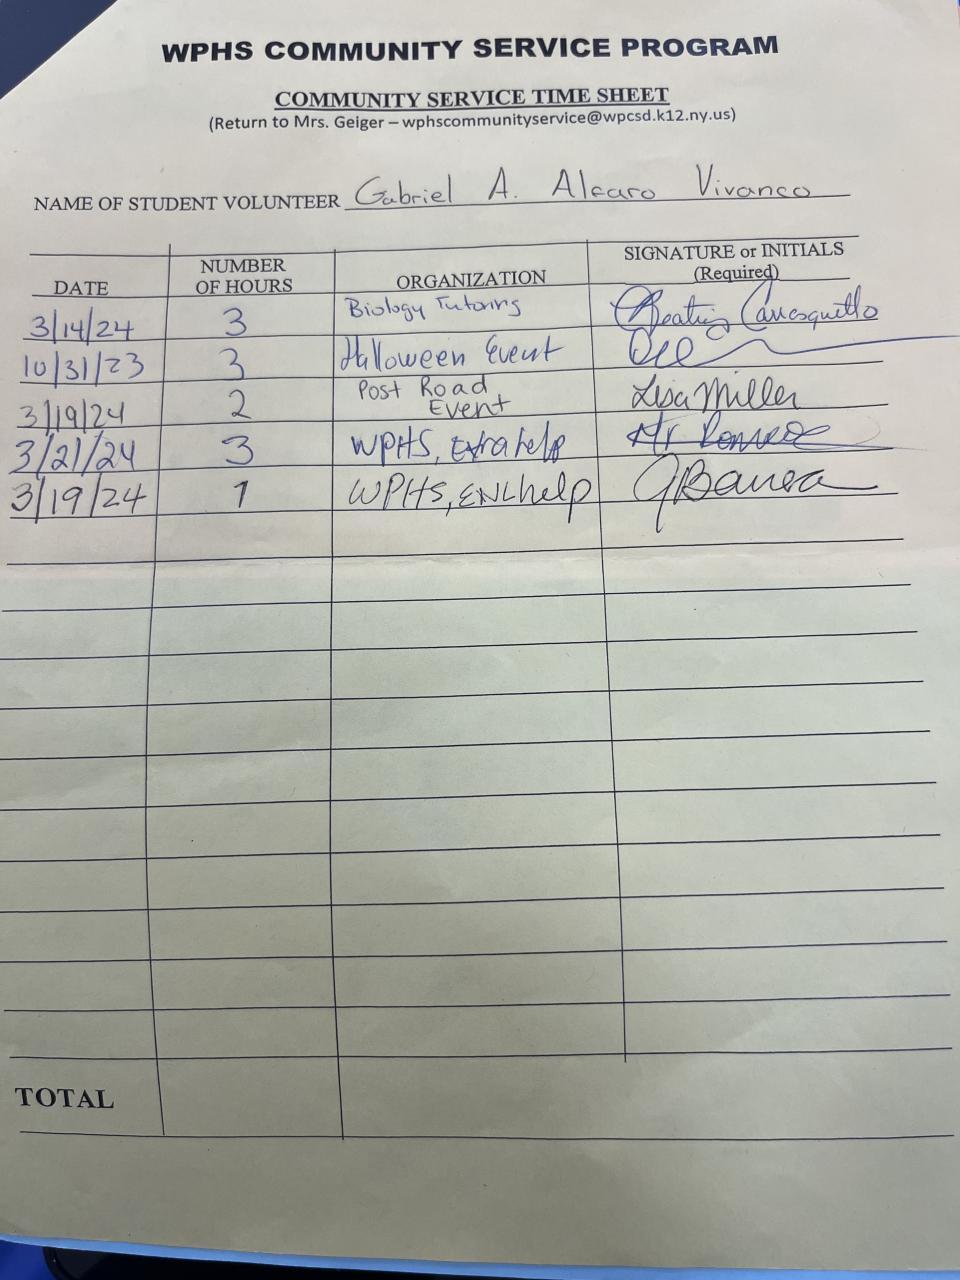 WPHS COMMUNITY SERVICE PROGRAM
COMMUNITY SERVICE TIME SHEET
(Return to Mrs. Geiger – wphscommunityservice@wpcsd.k12.ny.us)
NAME OF STUDENT VOLUNTEER Gabriel A. Alfaro Vivanco
DATE NUMBER OF HOURS ORGANIZATION SIGNATURE or INITIALS (Required)
3/14/24 3 Biology Tutoring Beatriz
10/31/23 3 Halloween Event
3/19/24 2 Post Road Event Lisa Miller
3/21/24 3 WPHS, Extra help Mr
3/19/24 1 WPHS, ENL help
TOTAL